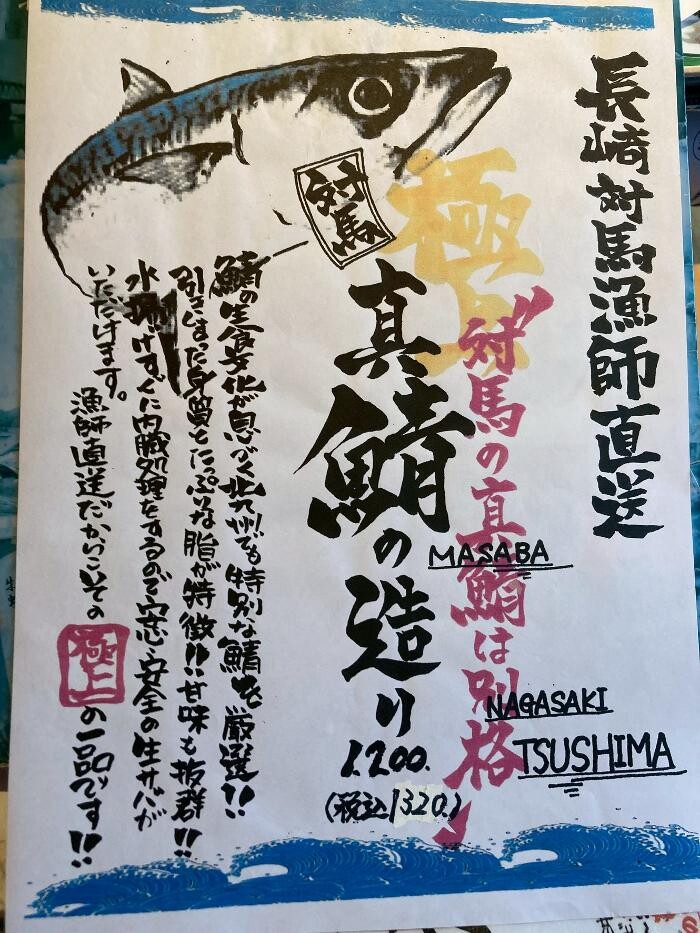 長崎対馬漁師直送
極上
"対馬の真鯖は別格"
対馬
真鯖の造り
MASABA
NAGASAKI
TSUSHIMA
1.200.
(税込1320.)
鯖の生食文化が息づく北九州でも特別な鯖を厳選!!
引きしまった身質とたっぷりな脂が特徴!!甘味も抜群!!
水揚げすぐに内臓処理をするので安心・安全の生サバが
いただけます。
漁師直送だからこいての極上の一品です!!